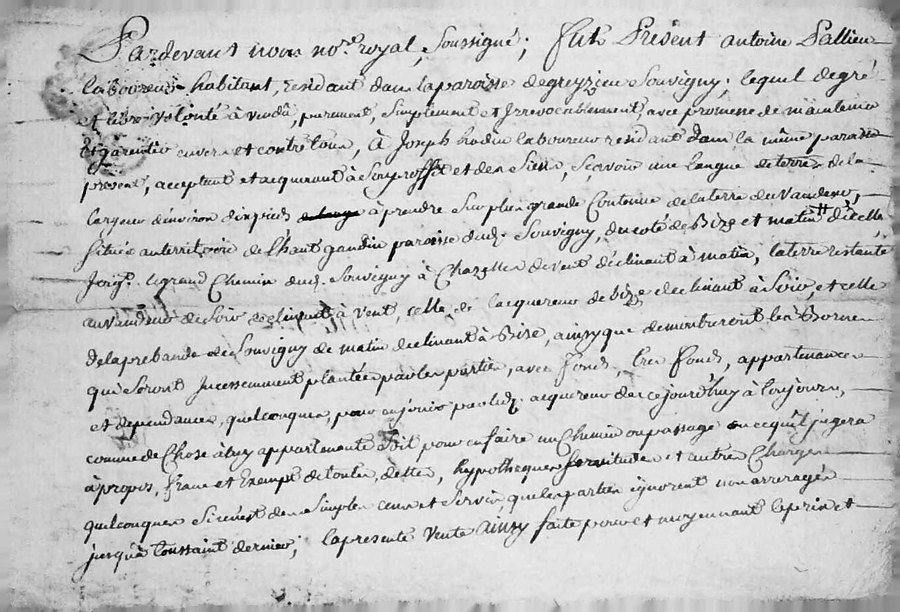 Pardevant nous no.re royal, soussigné; fut Présent antoine Pallieu
laboureur habitant, residant dans la paroisse de greyzieu Souvigny, lequel de gré
et libre volonté à vendu, purement, simplement et Irrevocablement, avec promesse de maintenir
et garentir envers et contre tous, à Joseph hodin laboureur residant dans la même paroisse
present, acceptant et acquerant à son proffit et des siens, scavoir une langue de terre de la
largeur d'environ dix pieds à prendre sur plus grande Contenue de la terre du Vandeur,
situés au territoire de l'haut gandin paroisse dud. Souvigny, du coté de Bize et matin d'icelle
Joign.t le grand Chemin dud. Souvigny à Chazelles de vent déclinant à matin, la terre restante
au vandeur de soir declinant à vent, celle de l'acquereur de bize declinant à soir, et celle
de la prebande de Souvigny de matin declinant à Bise, ainsy que demontreront les Bornes
qui seront Incessemment plantées par les parties, avec fonds, tres fonds, appartenances
et dependances quelconques, pour en jouir par led. acquereur des ce jourd'huy à toujours,
comme de Chose à luy appartenante soit pour en faire un Chemin ou passage ou ce qu'il jugera
à propos, franc et Exempt de toutes dettes, hypotheques servitudes et autres Charges
quelconques si n'est des simples cens et servis que les parties ignorent non arreragés
jusqu'à toussaint dernier; la presente Vente Ainsy faite pour et moyennant le prix et